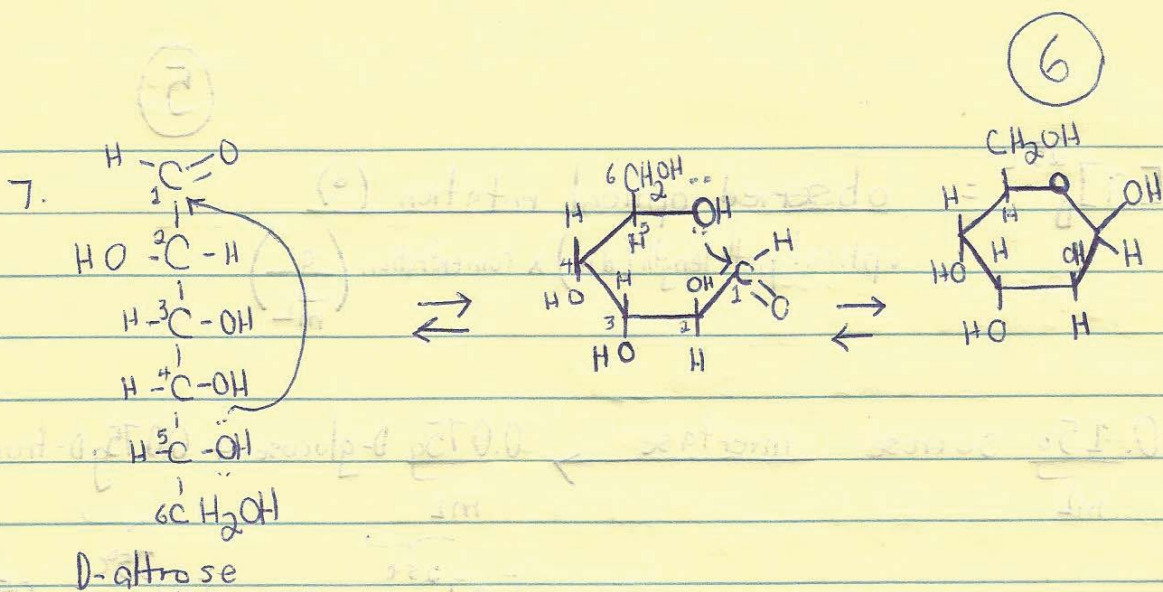 6
7.
H - C = O
1
HO - C2 - H
H - 3C - OH
H - 4C - OH
H - 5C - OH
6CH2OH
D-altrose
6 CH2OH
H
5
OH
H
H
4
HO
H
OH
C
1
O
3
2
HO
H
CH2OH
O
H
H
OH
HO
H
OH
H
HO
H